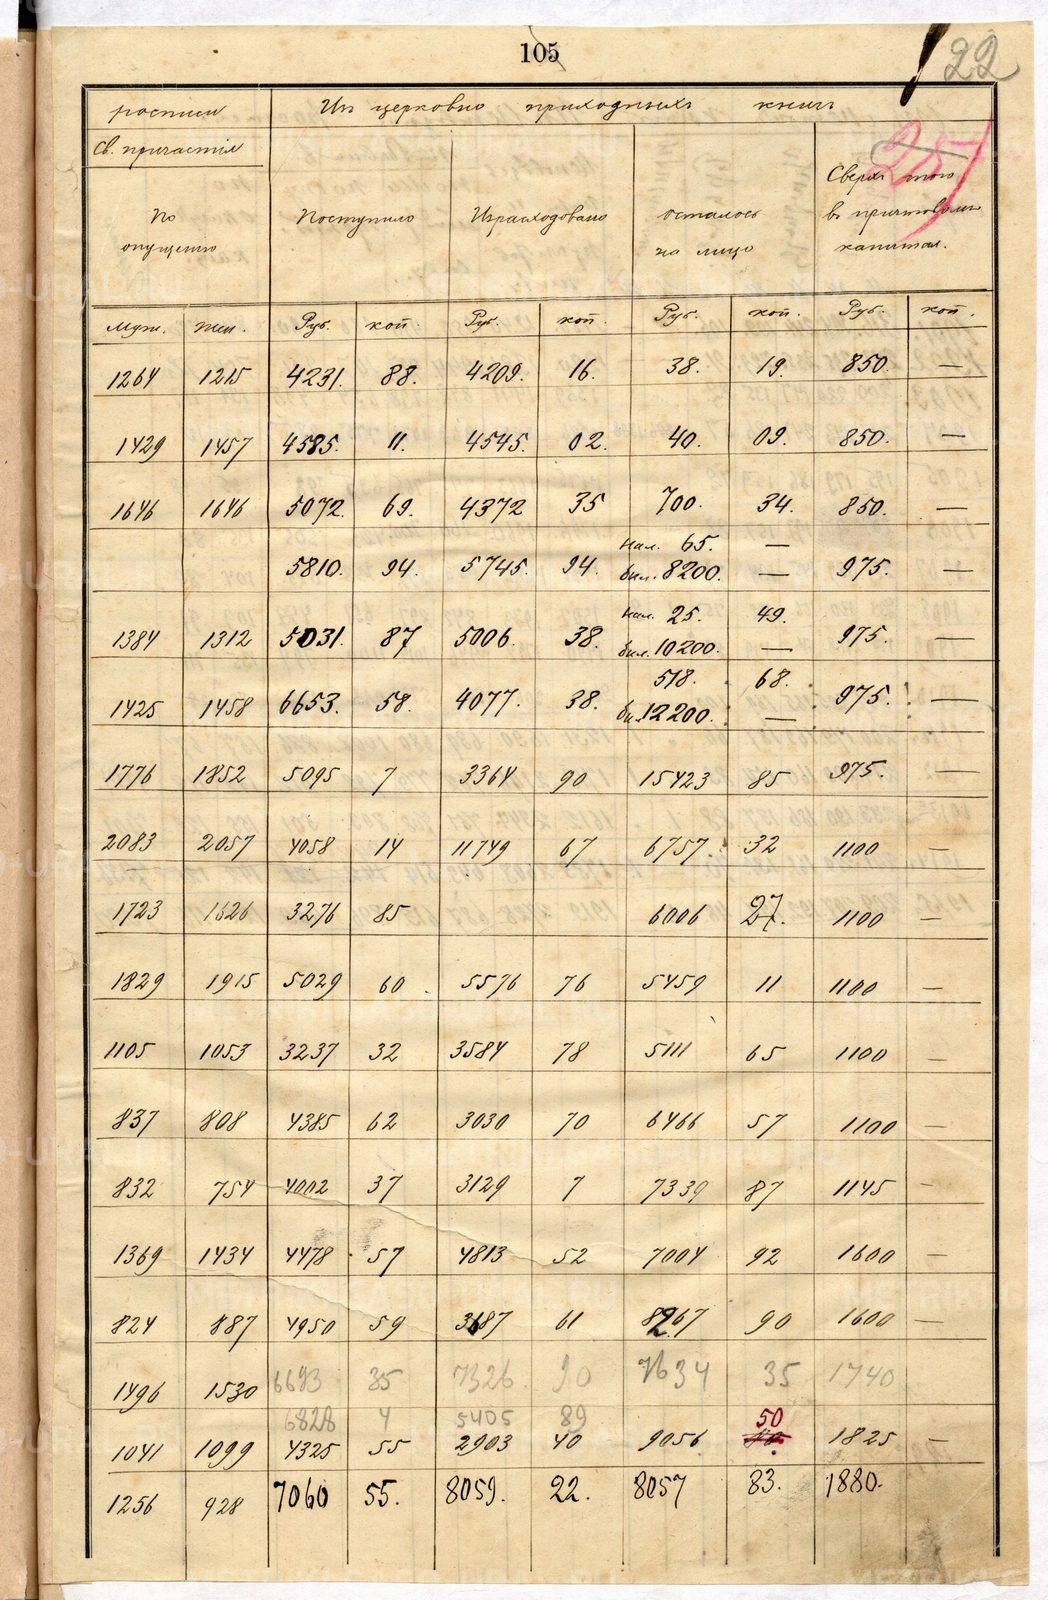 105
22
257
росписи
Из церковно приходныхъ книгъ
Св. причастія
по опущенію
Поступило
Израсходовано
осталось на лицо
Сверхъ того въ причтовомъ капитал.
Муж. Жен. Руб. коп. Руб. коп. Руб. коп. Руб. коп.
1264 1215 4231. 88. 4209. 16. 38. 19. 850. —
1429 1457 4585. 11. 4545. 02. 40. 09. 850. —
1646 1646 5072. 69. 4372 35 700. 34. 850. —
нал. 65. —
5810. 94. 5745. 94. бил. 8200. — 975. —
нал. 25. 49.
1384 1312 5031. 87 5006. 38. бил. 10200. — 975. —
518. 68.
1425 1458 6653. 58. 4077. 38. би. 12200. — 975. —
1776 1852 5095 7 3364 90 15423 85 975. —
2083 2057 4058 14 11749 67 6757 32 1100 —
1723 1626 3276 85 6006 27. 1100 —
1829 1915 5029 60 5576 76 5459 11 1100 —
1105 1053 3237 32 3584 78 5111 65 1100 —
837 808 4385 62 3030 70 6466 57 1100 —
832 754 4002 37 3129 7 7339 87 1145 —
1369 1434 4478 57 4813 52 7004 92 1600 —
824 887 4950 59 3687 61 8267 90 1600 —
1496 1530 6693 35 7326 90 7634 35 1740
6828 4 5405 89 50
1041 1099 4325 55 2903 40 9056 1825 —
1256 928 7060 55. 8059. 22. 8057 83. 1880.